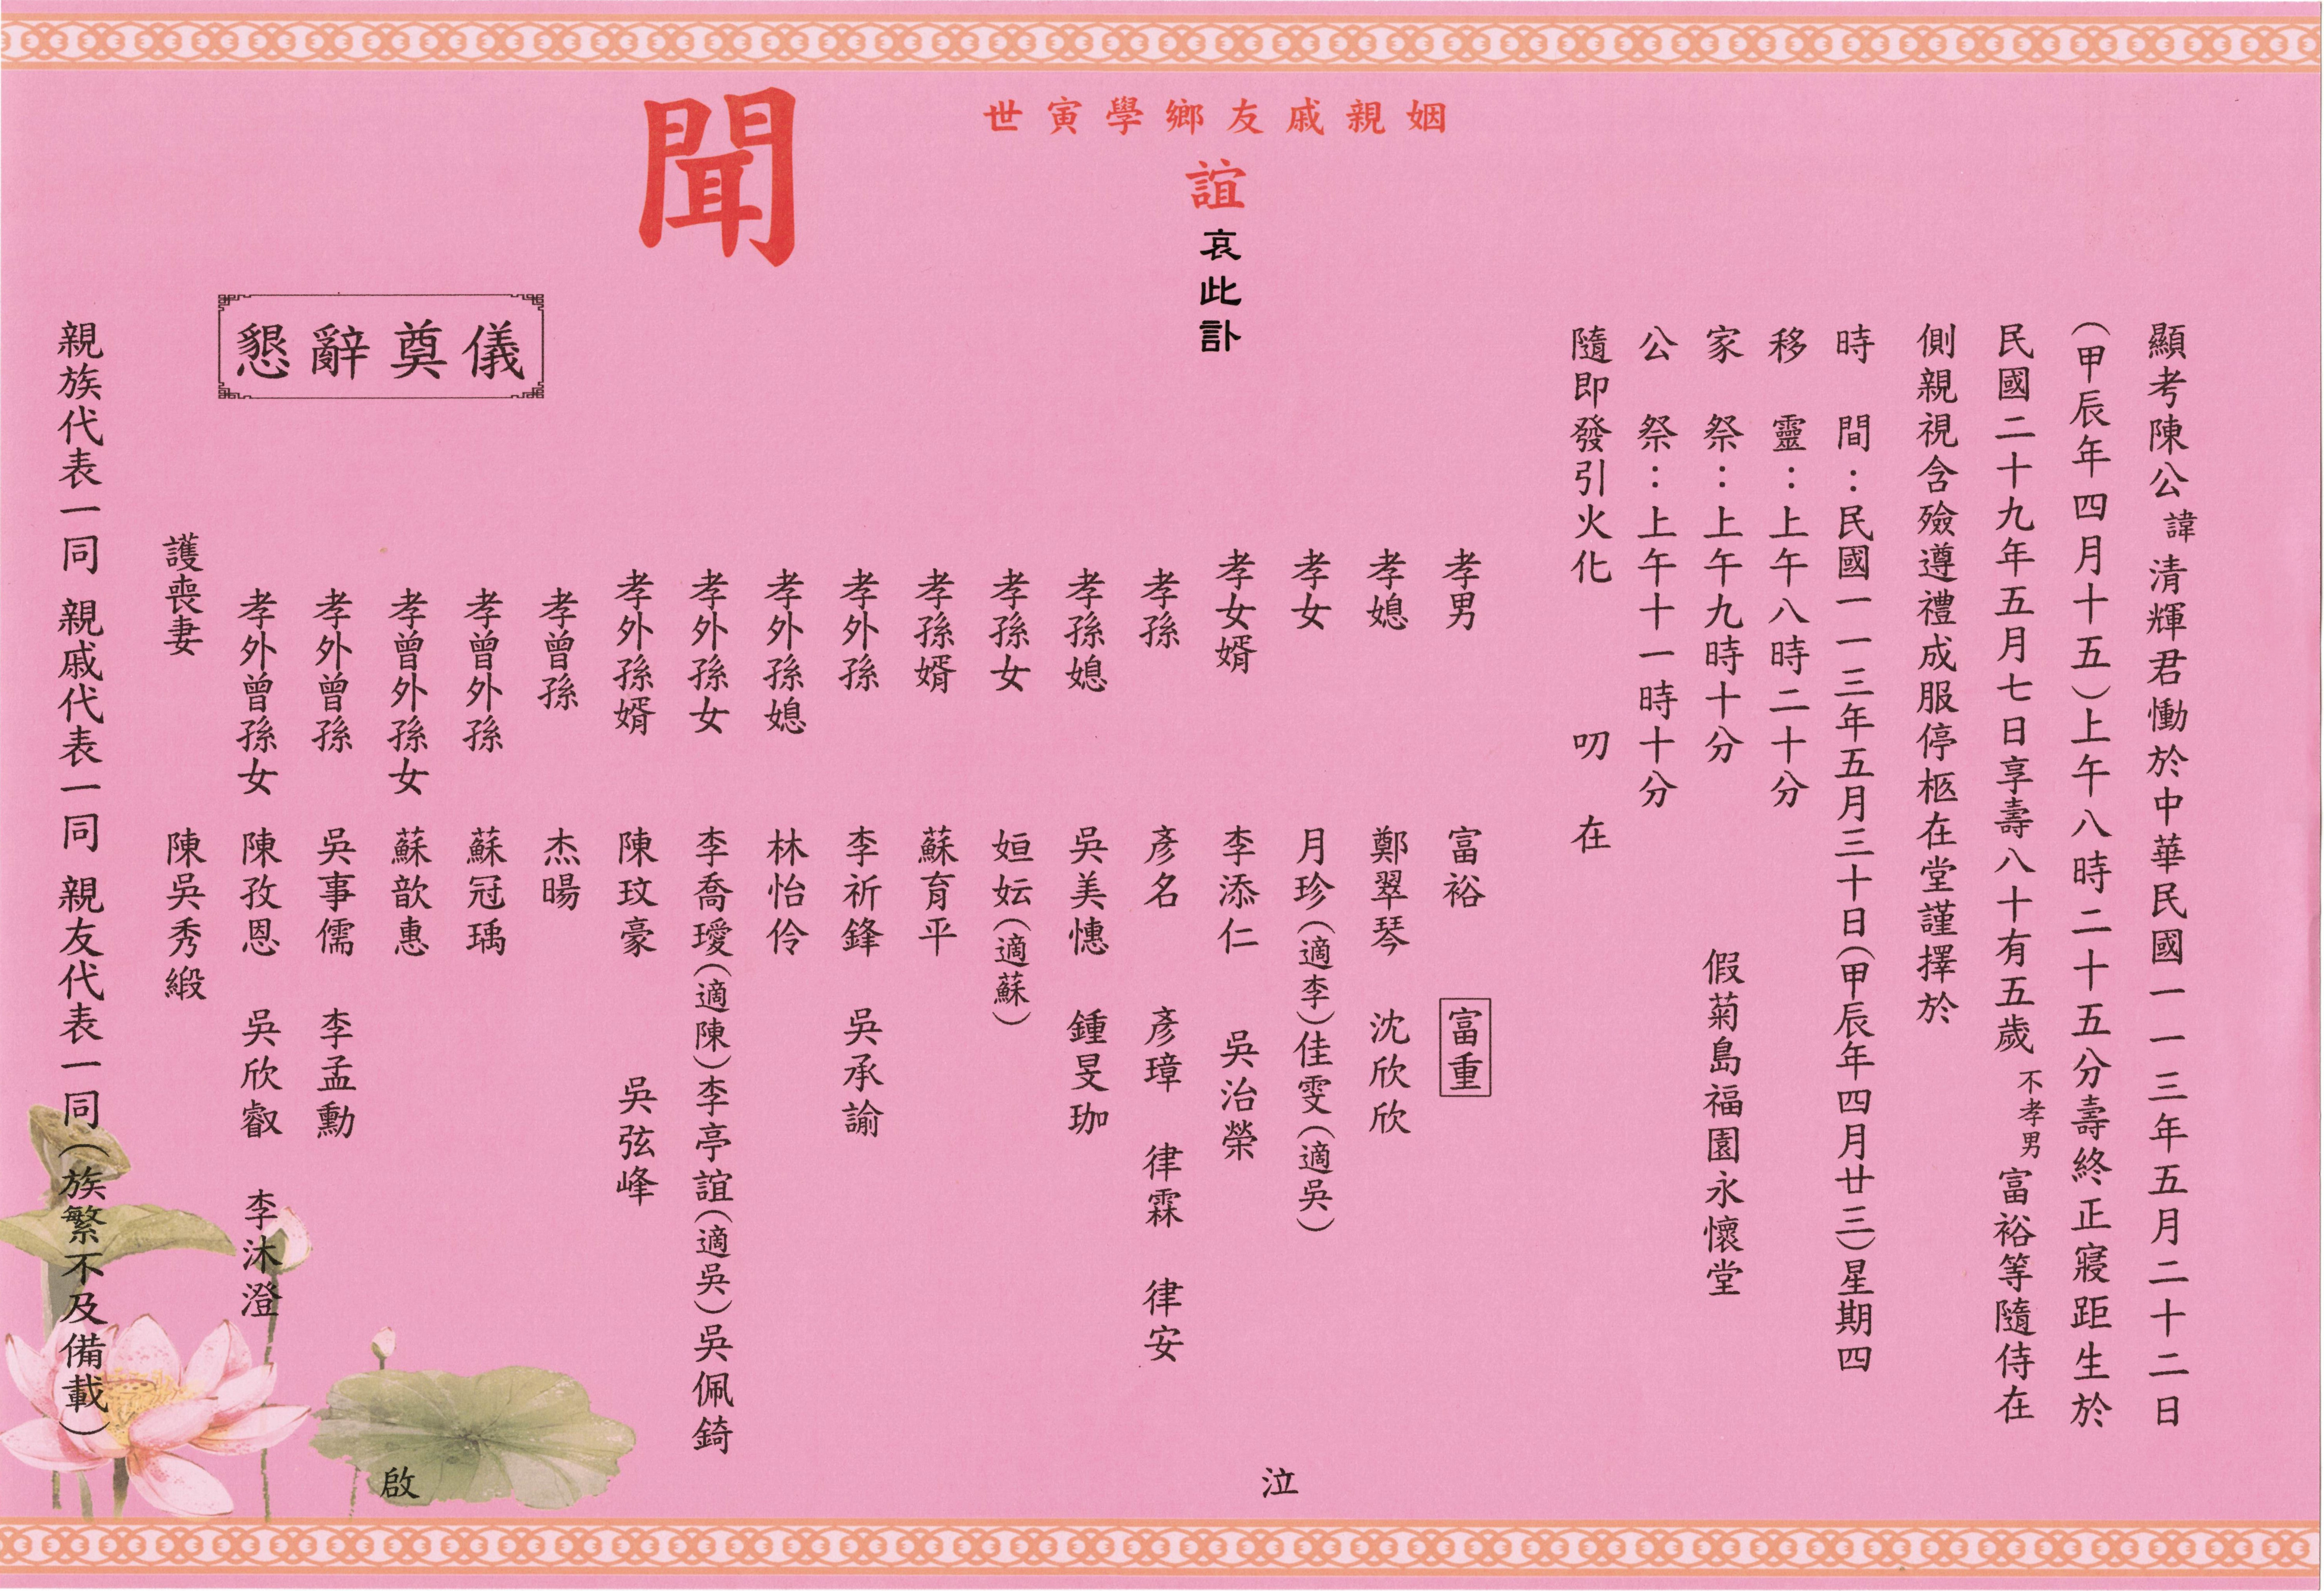 顯考陳公諱清輝君慟於中華民國一一三年五月二十二日
（甲辰年四月十五）上午八時二十五分壽終正寢距生於
民國二十九年五月七日享壽八十有五歲 不孝男 富裕等隨侍在
側親視含殮遵禮成服停柩在堂謹擇於
時　間：民國一一三年五月三十日（甲辰年四月廿三）星期四
移　靈：上午八時二十分
家　祭：上午九時十分
假菊島福園永懷堂
公　祭：上午十一時十分
隨即發引火化　叨　在
姻親戚友鄉學寅世
誼
哀此訃
聞
孝男　富裕　富重
孝媳　鄭翠琴　沈欣欣
孝女　月珍（適李）佳雯（適吳）
孝女婿　李添仁　吳治榮
孝孫　彥名　彥璋　律霖　律安
孝孫媳　吳美憓　鍾旻珈
孝孫女　姮妘（適蘇）
孝孫婿　蘇育平
孝外孫　李祈鋒　吳承諭
孝外孫媳　林怡伶
孝外孫女　李喬璦（適陳）李亭誼（適吳）吳佩錡
孝外孫婿　陳玟豪　吳弦峰
孝曾孫　杰暘
孝曾外孫　蘇冠瑀
孝曾外孫女　蘇歆惠
孝外曾孫　吳事儒　李孟勳
孝外曾孫女　陳孜恩　吳欣叡　李沐澄
護喪妻　陳吳秀緞
泣
啟
懇辭奠儀
親族代表一同 親戚代表一同 親友代表一同（族繁不及備載）